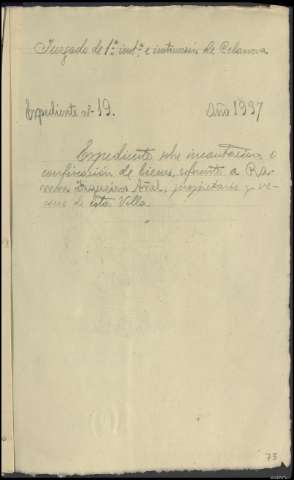 Juzgado de 1ª inst.ª e instrucción de Celanova
Expediente nº 19. Año 1937
Expediente sobre incautación o
confiscación de bienes, referente a
propietario y ve-
cino de esta Villa.
73